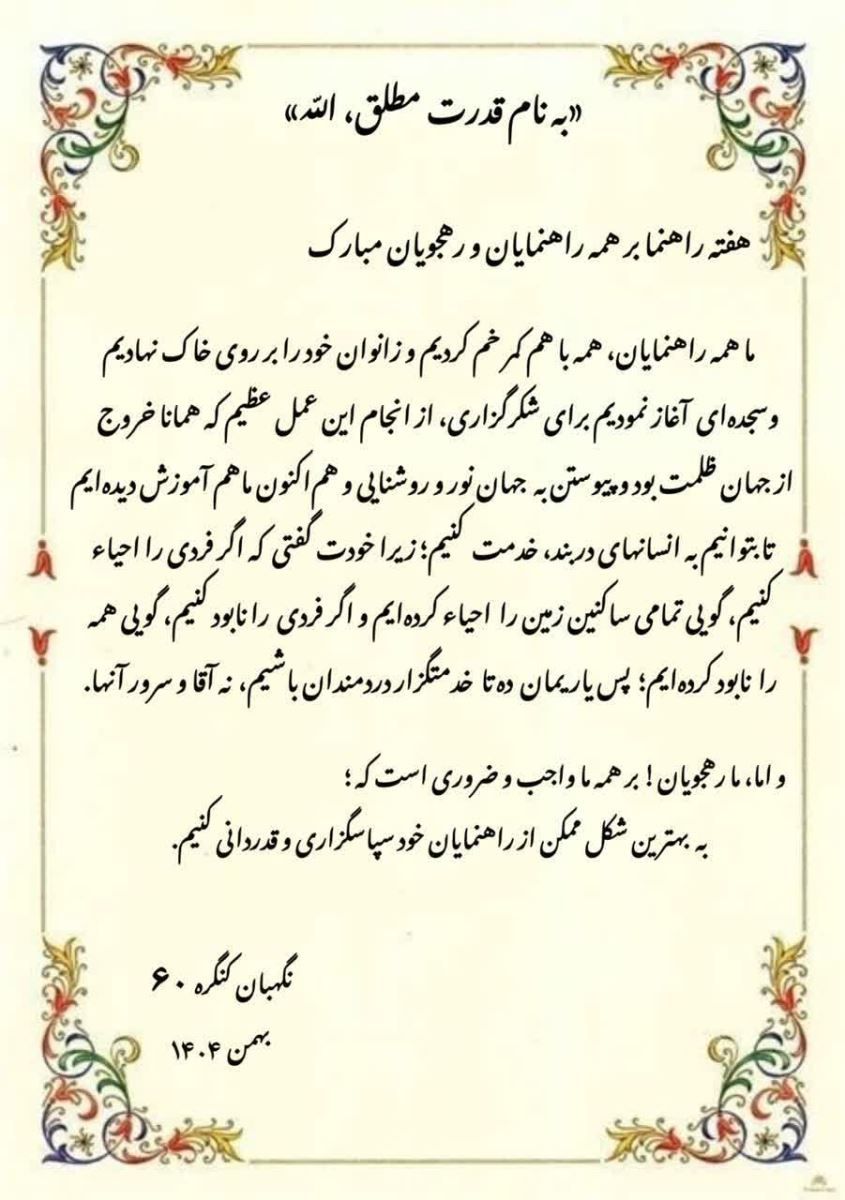 «به نام قدرت مطلق، الله»
هفته راهنما بر همه راهنمایان و رهجویان مبارک
ما همه راهنمایان، همه با هم کمر خم کردیم و زانوان خود را بر روی خاک نهادیم
و سجده‌ای آغاز نمودیم برای شکرگزاری، از انجام این عمل عظیم که همانا خروج
از جهان ظلمت بود و پیوستن به جهان نور و روشنایی و هم‌اکنون ما هم آموزش دیده‌ایم
تا بتوانیم به انسانهای دربند، خدمت کنیم؛ زیرا خودت گفتی که اگر فردی را احیاء
کنیم، گویی تمامی ساکنین زمین را احیاء کرده‌ایم و اگر فردی را نابود کنیم، گویی همه
را نابود کرده‌ایم؛ پس یاریمان ده تا خدمتگزار دردمندان باشیم، نه آقا و سرور آنها.
و اما، ما رهجویان! بر همه ما واجب و ضروری است که؛
به بهترین شکل ممکن از راهنمایان خود سپاسگزاری و قدردانی کنیم.
نگهبان کنگره ۶۰
بهمن ۱۴۰۴